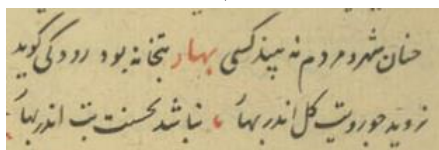 چنان شهر و مردم نه بیند کسی بهار بتخانه بود رودکی گوید
نروید چو رویت گل اندر بهار ، نباشد بحسنت بت اندر بهار